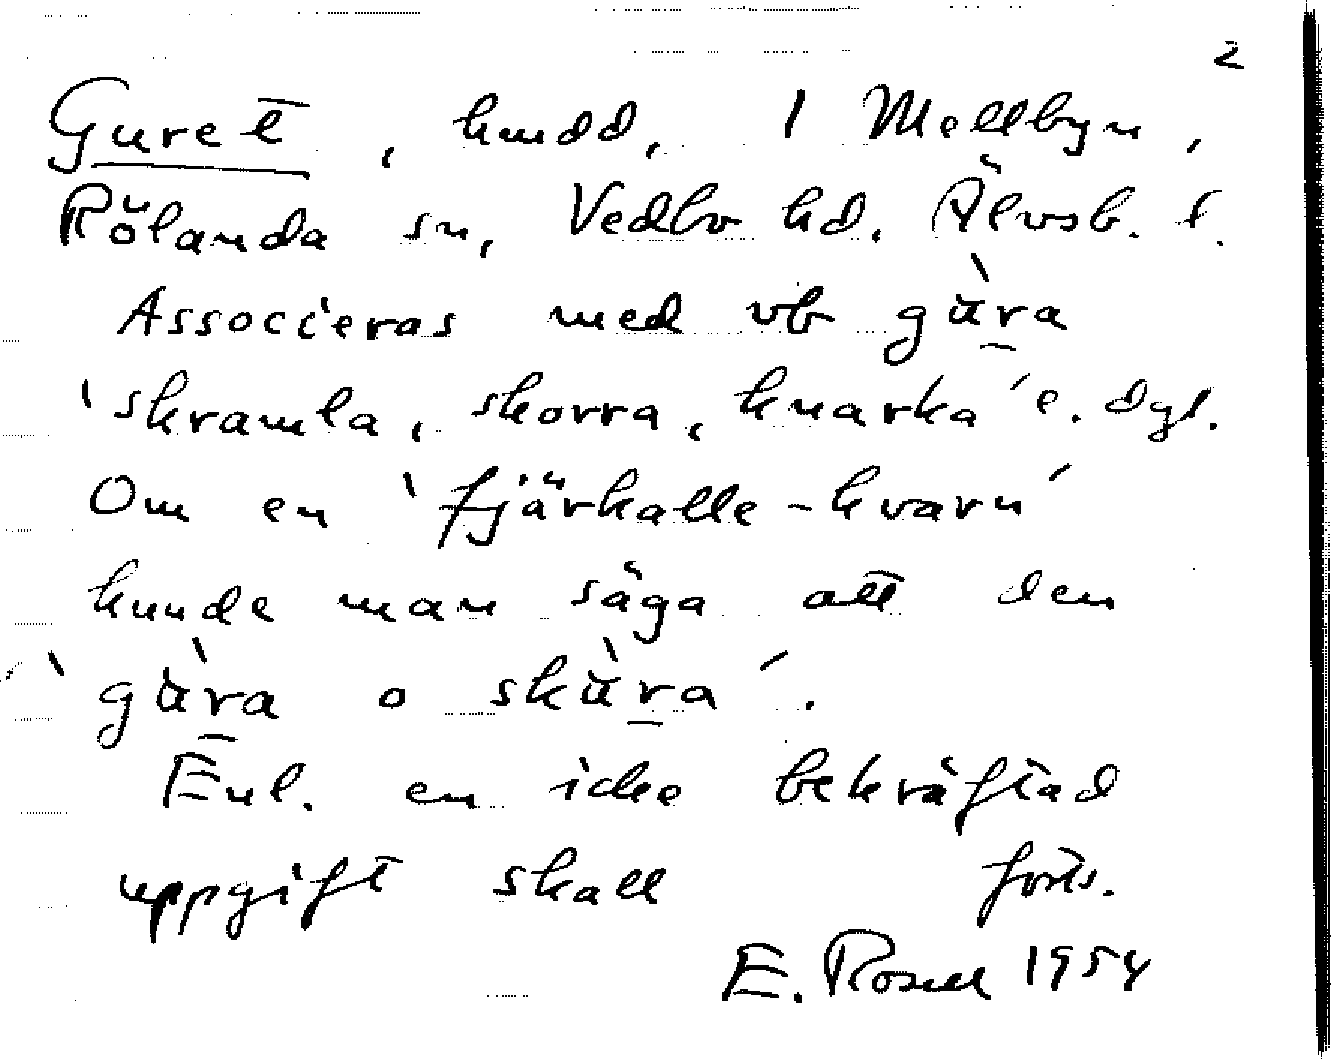 2
Guret, kmdd, 1 Mellbyn,
Rölanda sn, Vedbo hd. Älvsb. l.
Associeras med vb gùra
'skramla, skorra, knarka' e. dyl.
Om en 'fjärkalle-kvarn'
kunde man säga att den
'gùra o skùra'.
Enl. en icke bekräftad
uppgift skall forts.
E. Rosell 1954